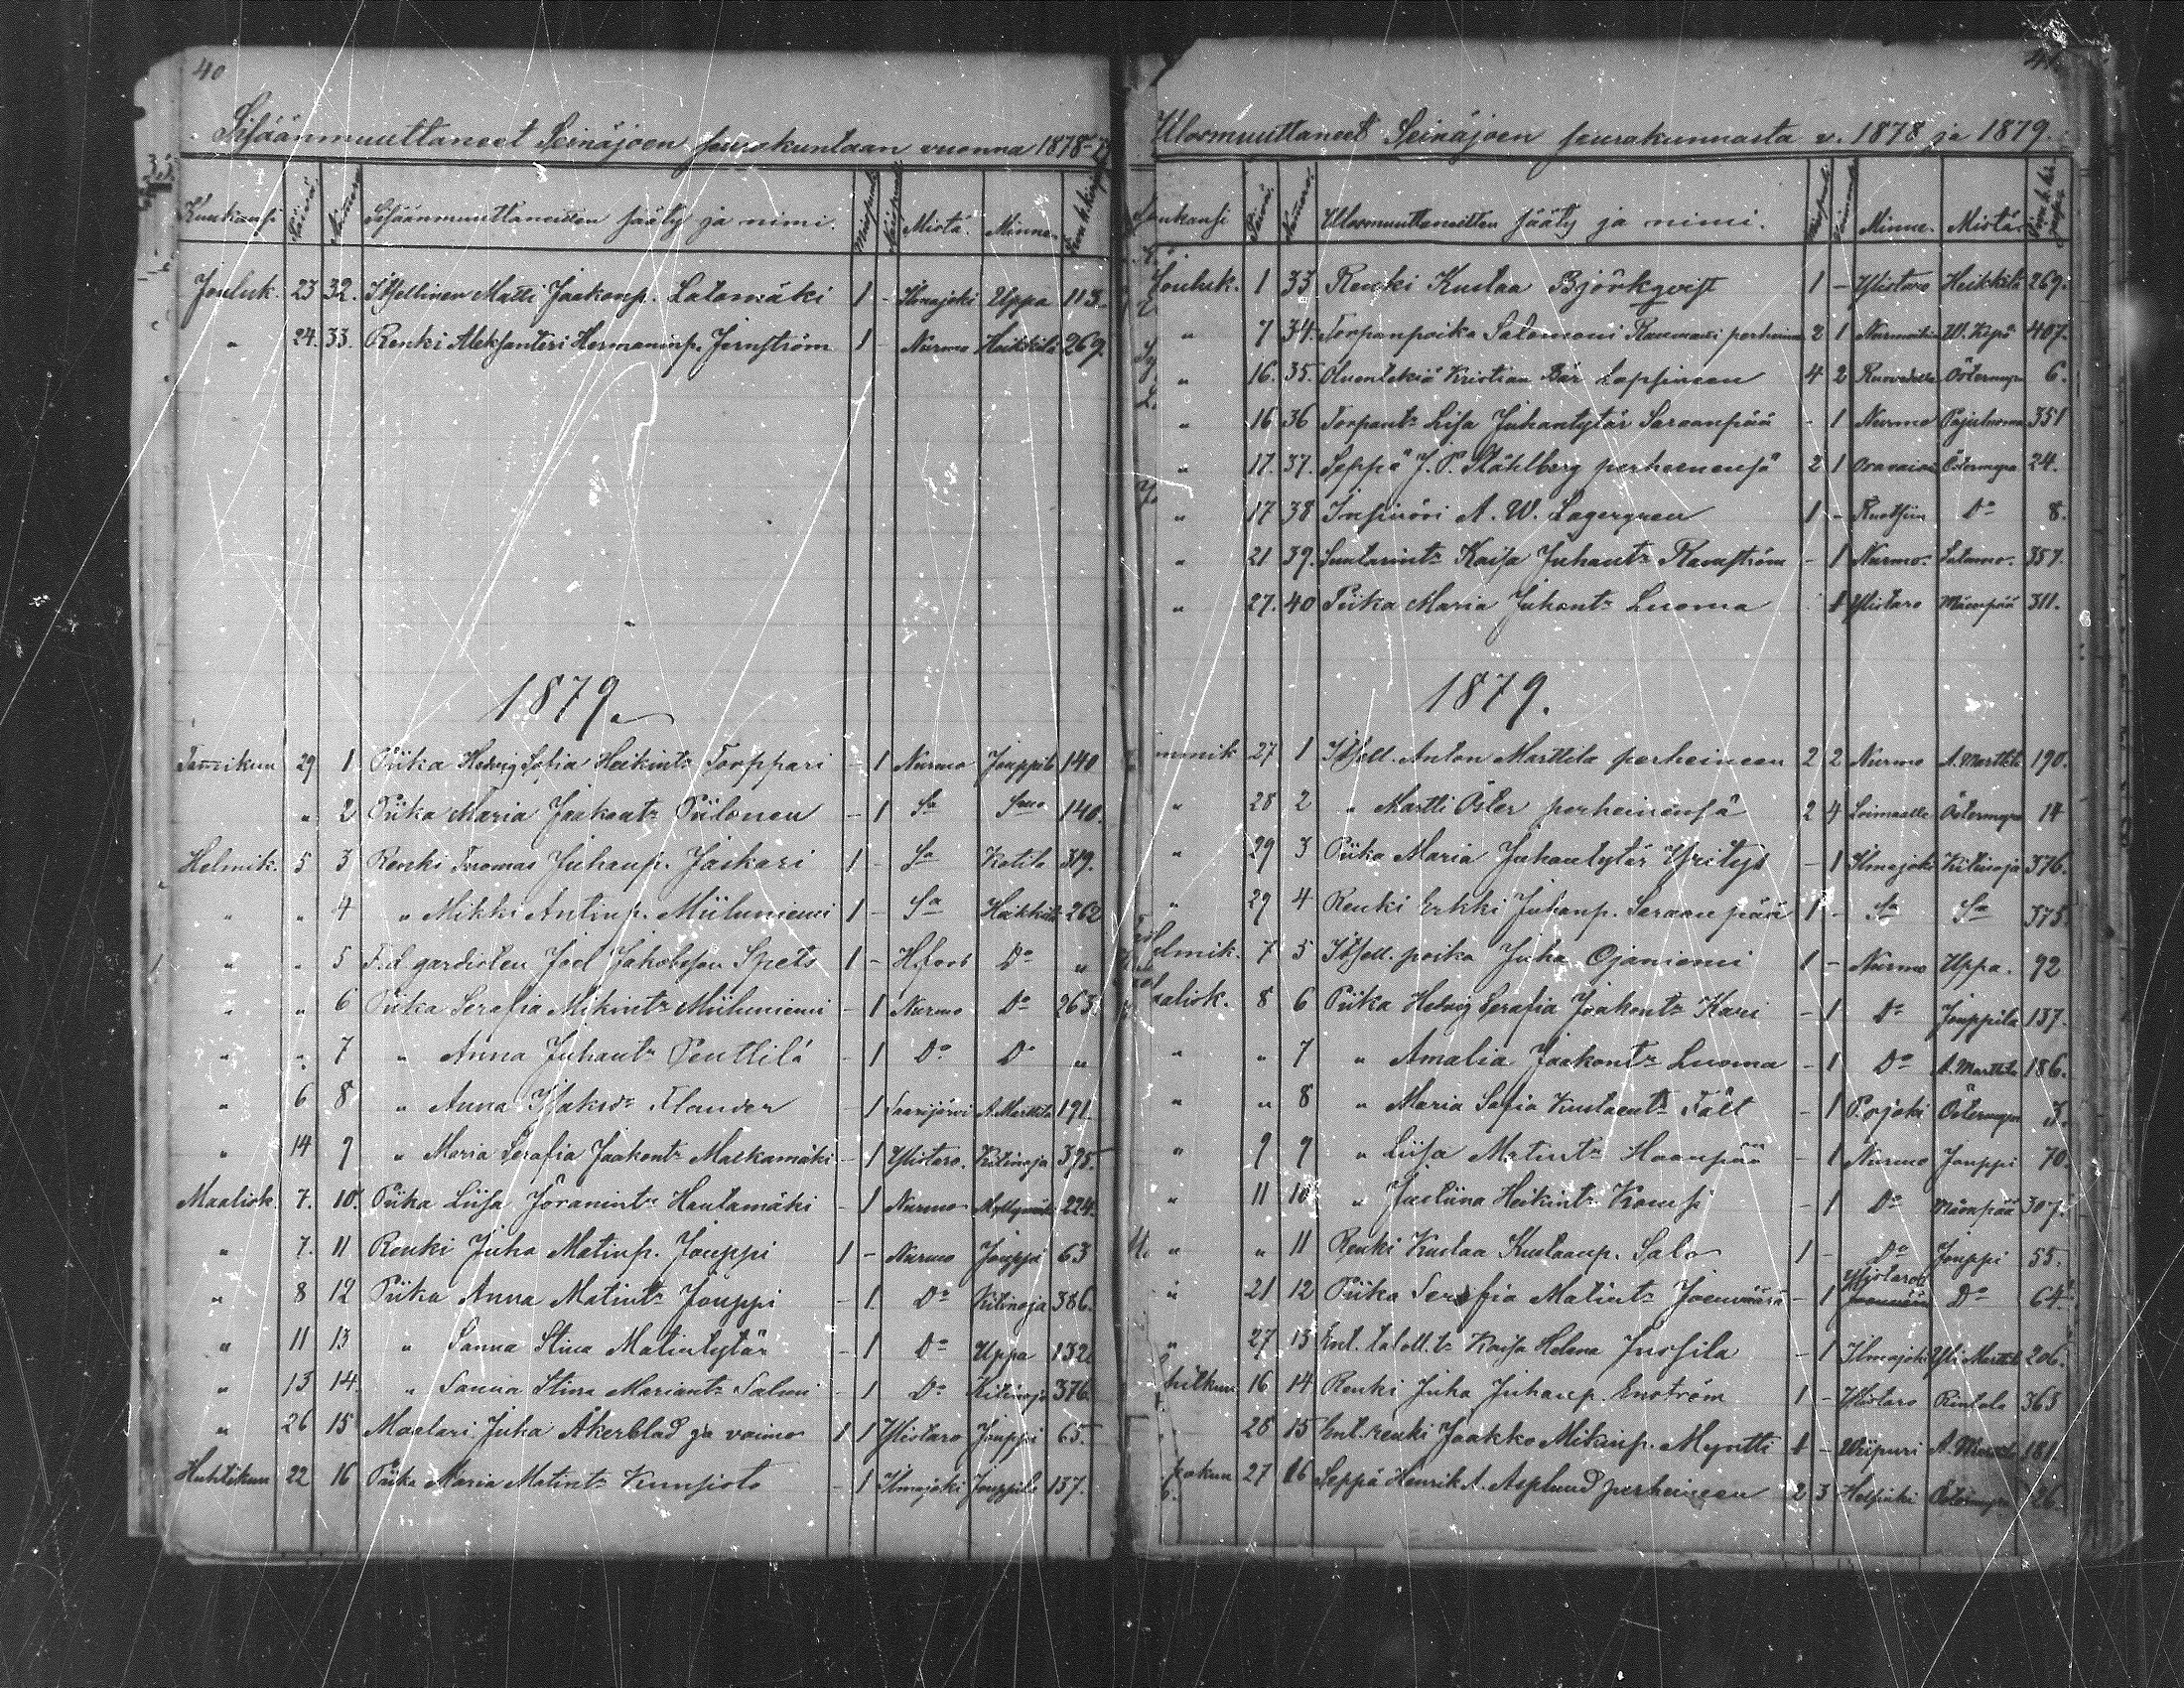 40
Sisäänmuuttaneet Seinäjoen seurakuntaan vuonna 1878-
Kuukausi Päivä Numero Sisäänmuuttaneitten sääty ja nimi. Miespuoli Mistä. Minne.
Jouluk. 23 32. Itsellinen Matti Jaakonp. Latomäki 1 - Ilmajoki Uppa 113.
" 24. 33. Renki Aleksanteri Hermanninp. Jernström 1 - Nurmo Heikkilä 269.
1879.
Tammikuu 29 1 Piika Hedvig Sofia Heikint: Torppari - 1 Nurmo Jouppila 140
" 2 Piika Maria Jaakont: Piilonen - 1 Sa Sma 140.
Helmik. 5 3 Renki Tuomas Juhanp. Jaskari 1 - Sa Katila 319.
" " 4 " Mikki Antinp. Miiluniemi 1 - Sa Heikkilä 262
" " 5 F.d. gardisten Joel Jakobsson Spets 1 - H.fors Do "
" " 6 Piika Serafia Mikint: Miiluniemi - 1 Nurmo Do 263.
" " 7 " Anna Juhant: Penttilä - 1 Do Do "
" 6 8 " Anna Isakint: Flander - 1 Saarijärvi A. Marttila 191.
" 14 9 " Maria Serafia Jaakont: Matkamäki - 1 Ylistaro. Kitinoja 395.
Maalisk. 7. 10. Piika Liisa Joramint: Hautamäki - 1 Nurmo Myllymäki 224.
" 7. 11 Renki Juha Matinp. Jouppi 1 - Nurmo Jouppi 63
" 8 12 Piika Anna Matint: Jouppi - 1 Do Kitinoja 386.
" 11 13 " Sanna Stina Matintytär - 1 Do Uppa 132
" 13 14. " Sanna Stina Mariant: Salmi - 1 Do Kitinoja 376.
" 26 15 Maalari Juha Åkerblad ja vaimo 1 1 Ylistaro Jouppi 65.
Huhtikuu 22 16 Piika Maria Matint: Kunsisto - 1 Ilmajoki Jouppila 137.
41.
Ulosmuuttaneet Seinäjoen seurakunnasta v. 1878 ja 1879.
Kuukausi Päivä. Numero. Ulosmuuttaneitten sääty ja nimi. Minne. Mistä.
Jouluk. 1 33 Renki Kustaa Björkqvist 1 - Ylistaro Heikkilä 269.
" 7 34. Torpanpoika Salomoni perheineen 2 1 407.
" 16. 35. Oluentekiä Kristian Bär Lapsineen 4 2 Ruovedelle Östermyra 6.
" 16 36 Torpant: Lisa Juhantytär Saraanpää - 1 Nurmo Pajuluoma 351
" 17. 37. Seppä J. P. Ståhlberg perheenensä 2 1 Oravainen Östermyra 24.
" 17 38 Insinöri A. W. Lagergren 1 - Ruotsiin Do 8.
" 21 39. Suutarint: Kaisa Juhant: - 1 Nurmo. 357.
" 27. 40 Piika Maria Juhant: Luoma 1 Ylistaro Mäenpää 311.
1879.
Tammik 27 1 Itsell. Anton Marttila perheineen 2 2 Nurmo A. Marttila 190.
" 28 2 " Martti Öster perheinensä 2 4 Loimaalle Östermyra 14
" 29 3 Piika Maria Juhantytär Yritys - 1 Ilmajoki Kitinoja 376.
" 29 4 Renki Erkki Juhanp. Seraanpää 1 - Sa Sa 375
Helmik. 7 5 Itsell. poika Juha Ojaniemi 1 - Nurmo Uppa. 92
Maalisk. 8 6 Piika Hedvig Serafia Jaakont: Kari - 1 Do Jouppila 137.
" " 7 " Amalia Jaakont: Luoma - 1 Do A. Marttila 186.
" " 8 " Maria Sofia Kustaant: Fält - 1 P.ojoki Östermyra 3.
" 9 9 " Liisa Matint: Haanpää - 1 Nurmo Jouppi 70.
" 11 10 " Justiina Heikint: - 1 Do Mäenpää 307.
" " 11 Renki Kustaa Kustaanp. Salo 1 - Do Jouppi 55.
" 21 12 Piika Serafia Matint: Joenväärä - 1 Ylistaroo Do 64.
" 27 13 Ent. taloll. t: Kaisa Helena Jussila - 1 Ilmajoki Yli Marttila 206.
Huhtikuu 16 14 Renki Juha Juhanp. Enström 1 - Ylistaro Rintala 363
28 15 Ent. renki Jaakko Mikinp. Myntti 1 - Wiipuri A. Marttila 181
Toukokuu 27 16 Seppä Henrik A. Asplund perheineen 2 3 Helsinki Östermyra 26.